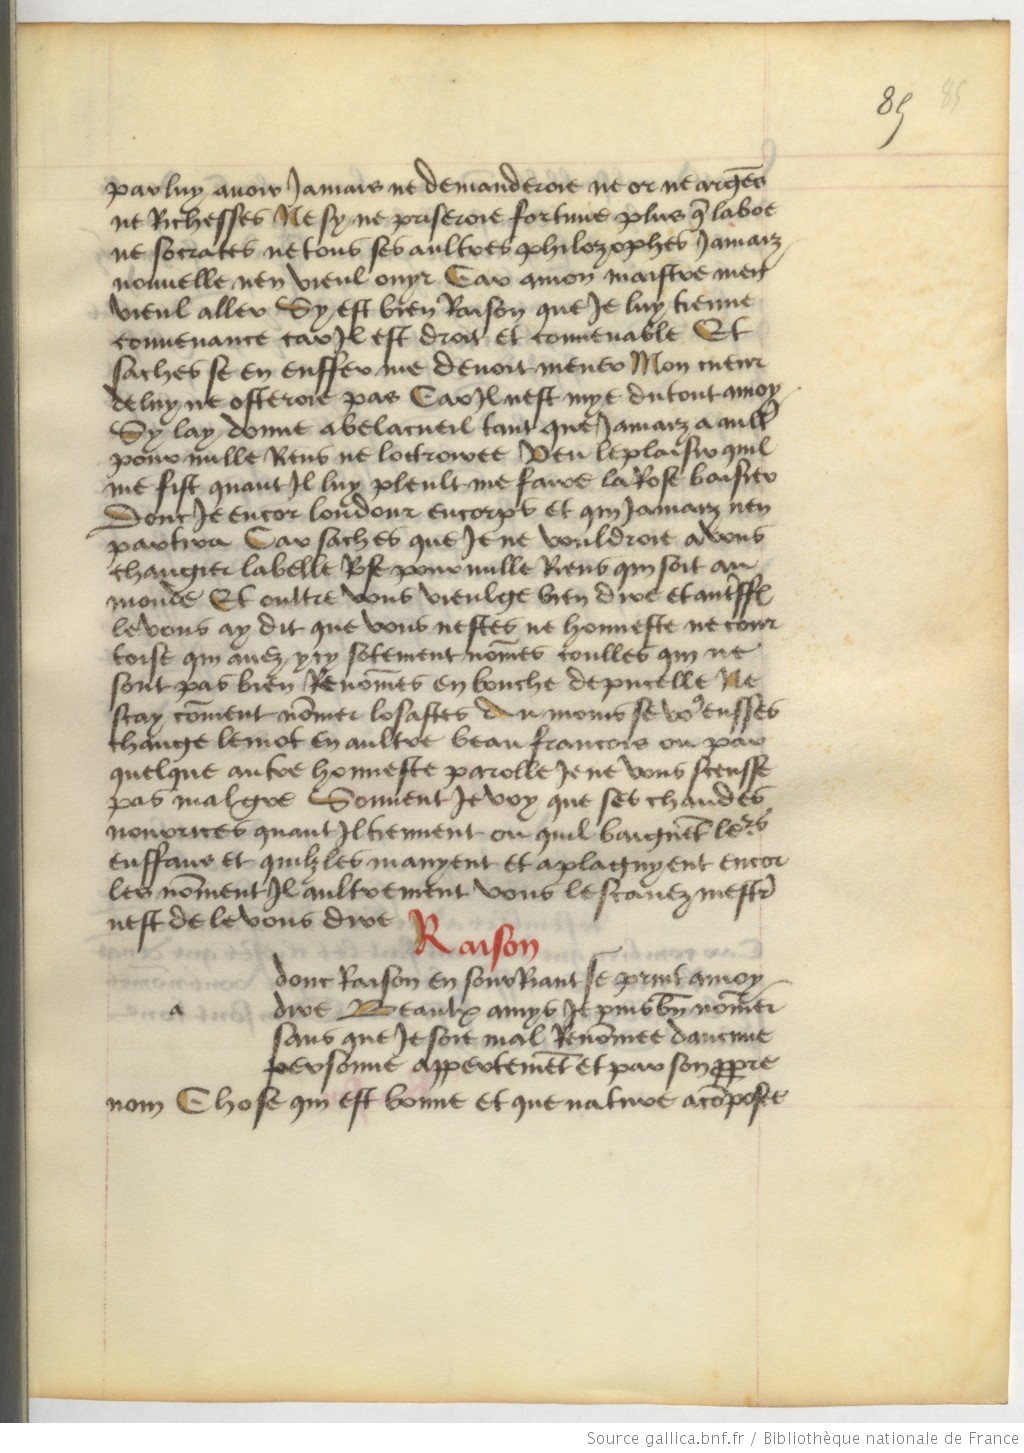 85 85
par luy avoir Jamais ne demanderoie ne or ne argẽs
ne Richesses Ne sy ne priseroie fortune plus q̃ laboe
ne socrates ne tous ses aultres philozophes Jamaiz
nouuelle nen vieul ouyr Car amon maistre men
vieul aller Sy est bien Raison que Je luy tienne
conuenance car Jl est droit et conuenable Et
saches se en enffer me deuoit mener Mon cueur
de luy ne osteroie pas Car Jl nest mye du tout amoy
Sy lay donne abelacueil tant que Jamaiz a aultʳ
pour nulle Riens ne loctroiree Veu le plaisir quil
me fist quant Jl luy pleult me faire la Rose baisier
Donc Je encor loudour encorps et qui Jamaiz nen
partira Car saches que Je ne vouldroie a vous
changier labelle Rose pour nulle Riens qui soit au
monde Et oultre vous vieulge bien dire et
le vous ay dit que vous nestes ne honneste ne cour
toise qui auez ycy sotement nõmes coulles qui ne
sont pas bien Renõmes en bouche de pucelle Ne
scay cõment nõmer losastes Au moins se voꝰ eussez
change lemot en aultre beau francois ou par
quelque autre honneste parolle Je ne vous sceusse
pas malgre Souuent Je voy que ses chaudes
nourrices quant Jl tiennent ou quil baignẽt leʳs
enffans et quilz les manyent et aplagnyent encor
les nõment Jl aultrement vous le scauez mestʳ
nest de le vous dire
Raison
donc Raison en sourRiant se print amoy
a dire Beaulx amys Je puis bñ nõmer
sans que Je soie mal Renõmee daucune
personne appertemẽt et par son ꝓpre
nom Chose qui est bonne et que nature acõposee
Source gallica.bnf.fr / Bibliothèque nationale de France